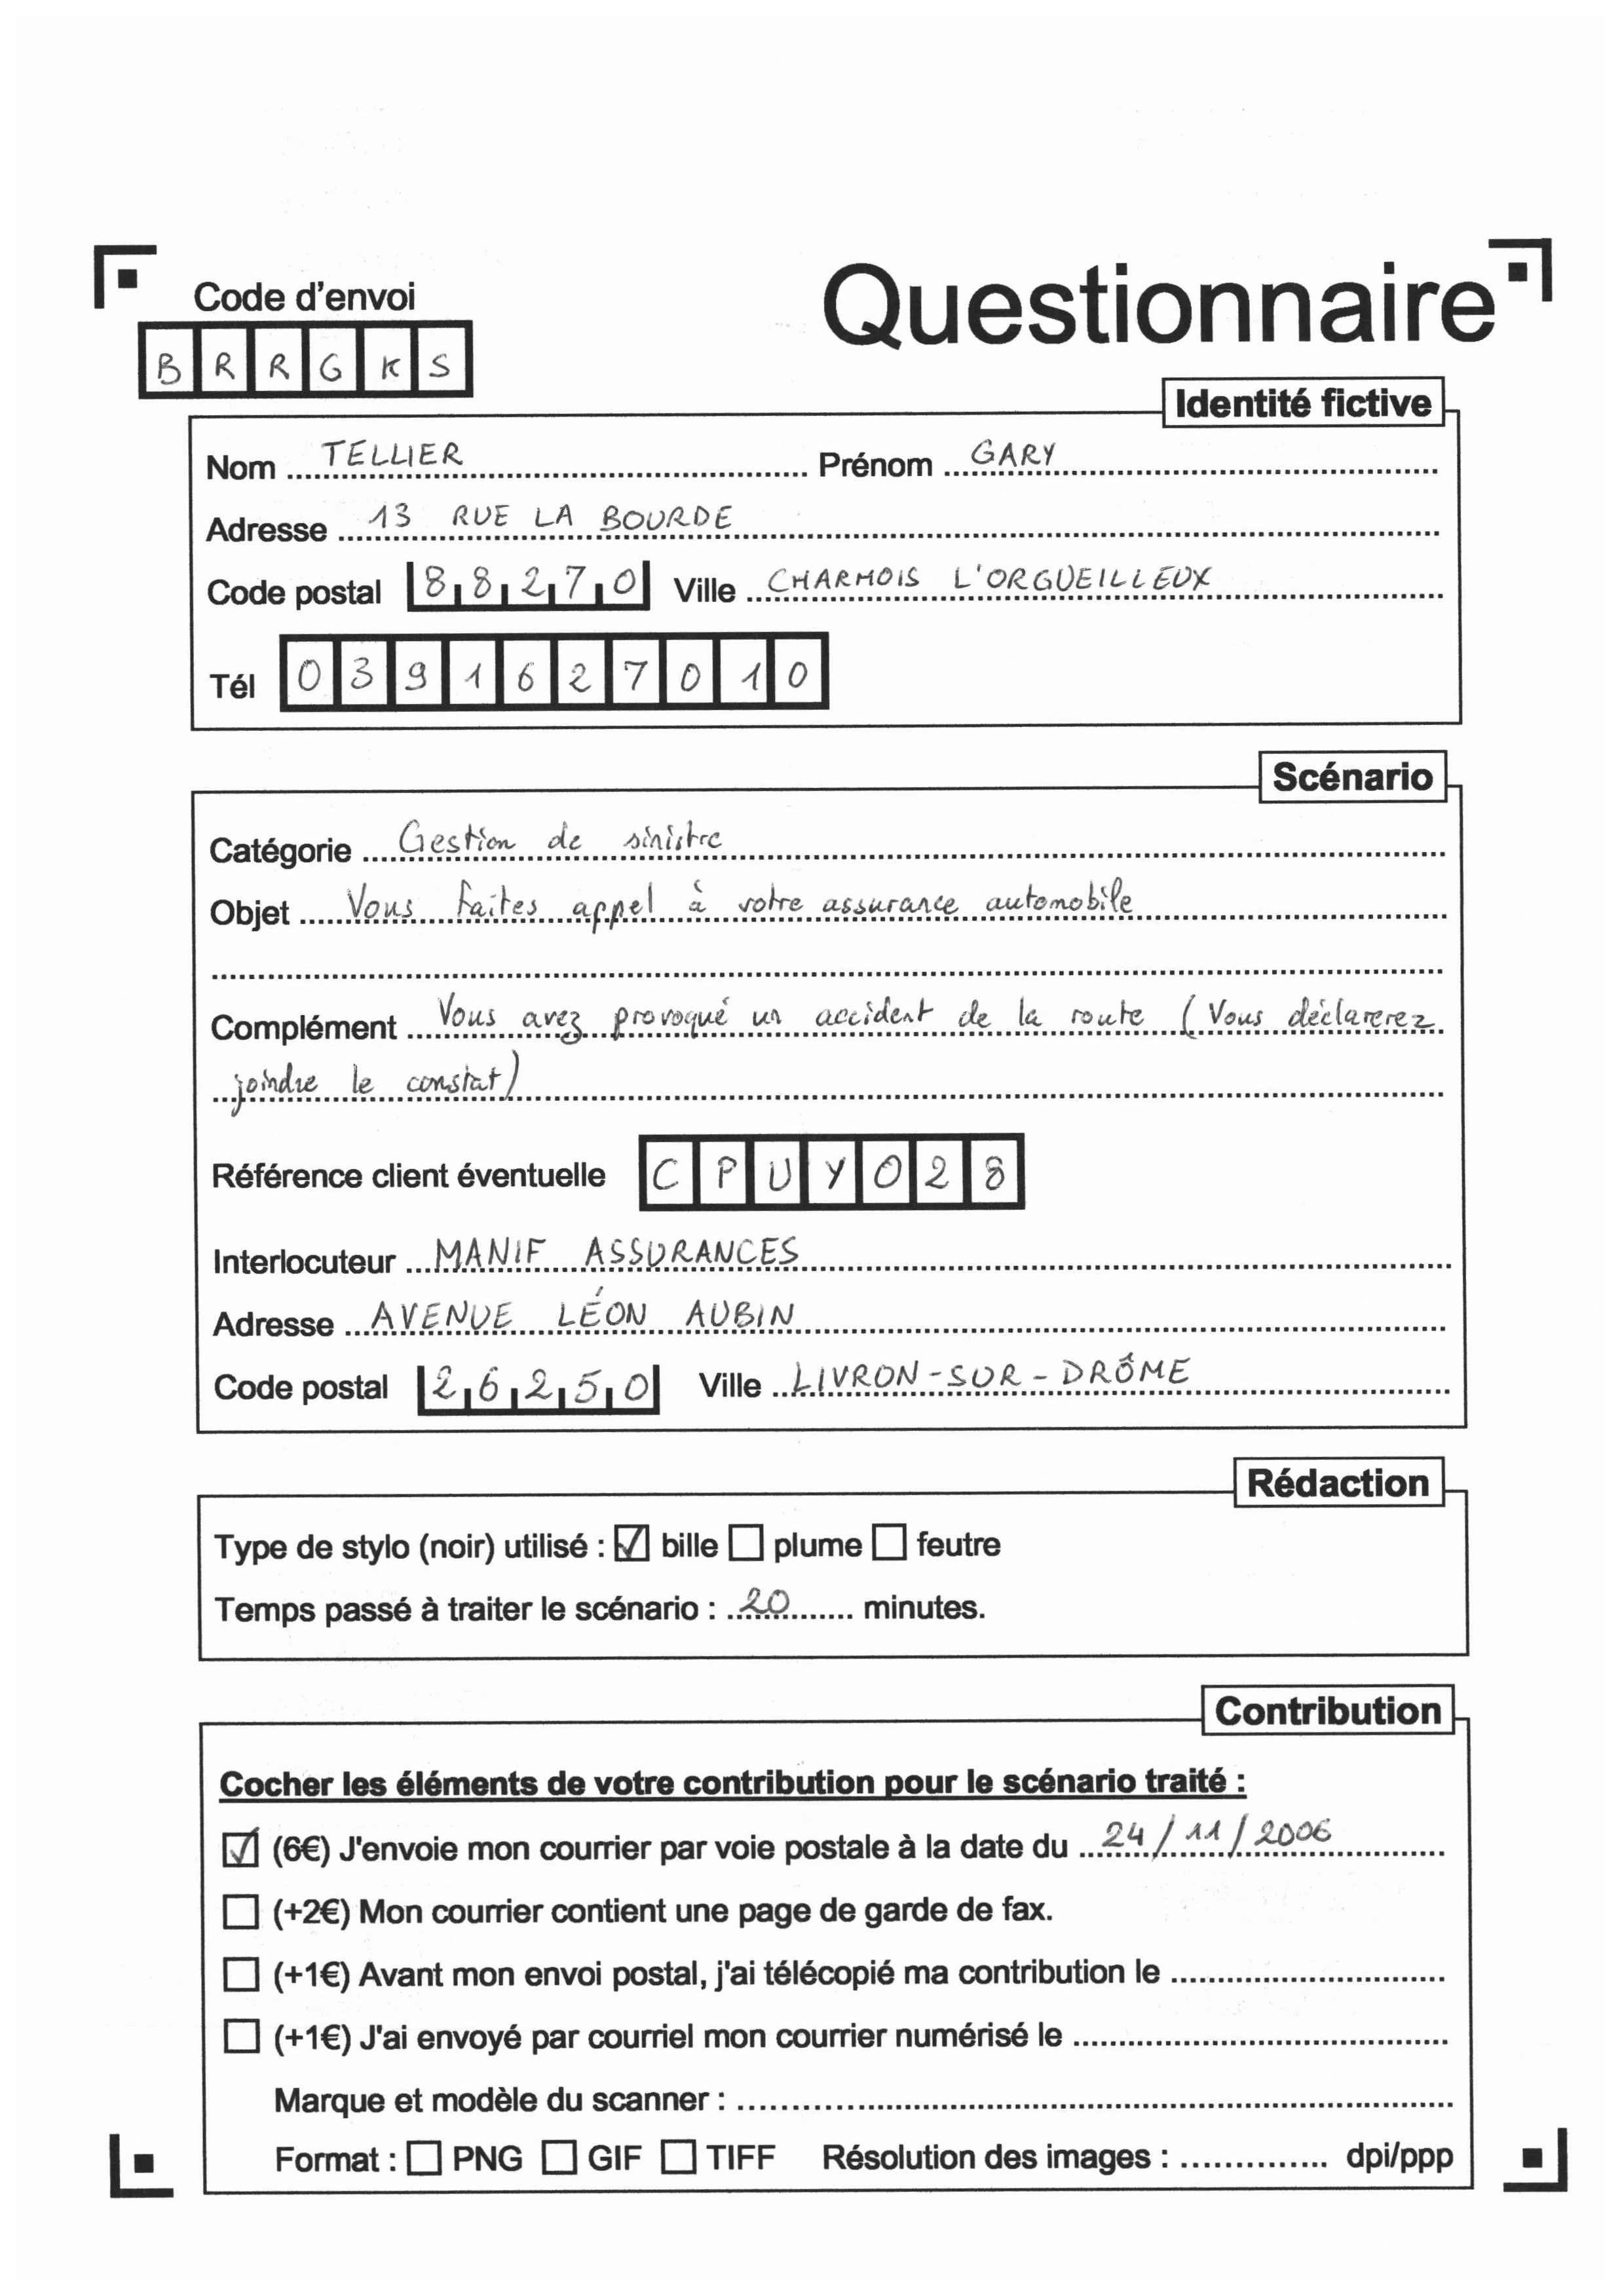 Code d'envoi
Questionnaire
B R R G K S
Identité fictive
Nom TELLIER Prénom GARY
Adresse 13 RUE LA BOURDE
Code postal 88270 Ville CHARMOIS L'ORGUEILLEUX
Tél 0391627010
Scénario
Catégorie Gestion de sinistre
Objet Vous faites appel à votre assurance automobile
Complément Vous avez provoqué un accident de la route (Vous déclarerez
joindre le constat)
Référence client éventuelle CPUY028
Interlocuteur MANIF ASSURANCES
Adresse AVENUE LÉON AUBIN
Code postal 26250 Ville LIVRON-SUR-DRÔME
Rédaction
Type de stylo (noir) utilisé : ☑ bille ☐ plume ☐ feutre
Temps passé à traiter le scénario : 20 minutes.
Contribution
Cocher les éléments de votre contribution pour le scénario traité :
☑ (6€) J'envoie mon courrier par voie postale à la date du 24/11/2006
☐ (+2€) Mon courrier contient une page de garde de fax.
☐ (+1€) Avant mon envoi postal, j'ai télécopié ma contribution le
☐ (+1€) J'ai envoyé par courriel mon courrier numérisé le
Marque et modèle du scanner :
Format : ☐ PNG ☐ GIF ☐ TIFF Résolution des images : dpi/ppp